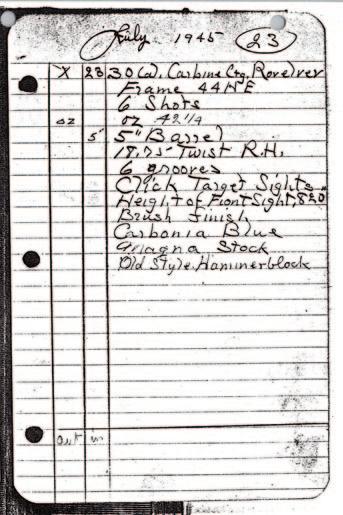 July 1945 23
X 23 30 Cal. Carbine Ctg. Rovelver
Frame 44 N E
6 Shots
oz oz 42 1/4
5" 5" Barrel
18.75" Twist R.H.
6 grooves
Click Target Sights
Height of Front Sight, 820"
Brush finish
Carbonia Blue
Magna Stock
Old Style Hammerblock
out in